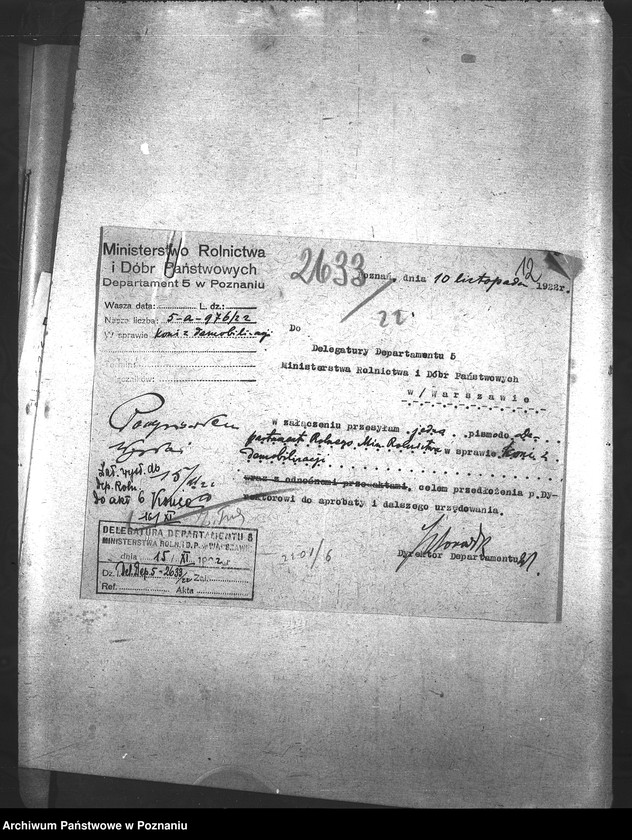 12
Ministerstwo Rolnictwa
i Dóbr Państwowych
Departament 5 w Poznaniu
2633
22
Poznań, dnia 10 listopada 1922r.
Wasza data: L. dz.:
Nasza liczba: 5-a-976/22
W sprawie koni z demobilizacji
Termin:
Załączników:
Do
Delegatury Departamentu 5
Ministerstwa Rolnictwa i Dóbr Państwowych
w/Warszawie
W załączeniu przesyłam jedno pismo do De-
partament Rolnego Min. Rolnictwa w sprawie koni z
demobilizacji
wraz z odnośnemi przewaktami, celem przedłożenia p. Dy-
rektorowi do aprobaty i dalszego urzędowania.
Dyrektor Departamentu
Zał. wysł. do
Dep. Roln. 15/XI 22
do akt 6
16/XI
2101/6
DELEGATURA DEPARTAMENTU 5
MINISTERSTWA ROLN. i D. P. w WARSZAWIE
dnia 15/XI 1922
Dz. Del. Dep. 5-2633/22 Zał.
Ref. Akta
Archiwum Państwowe w Poznaniu